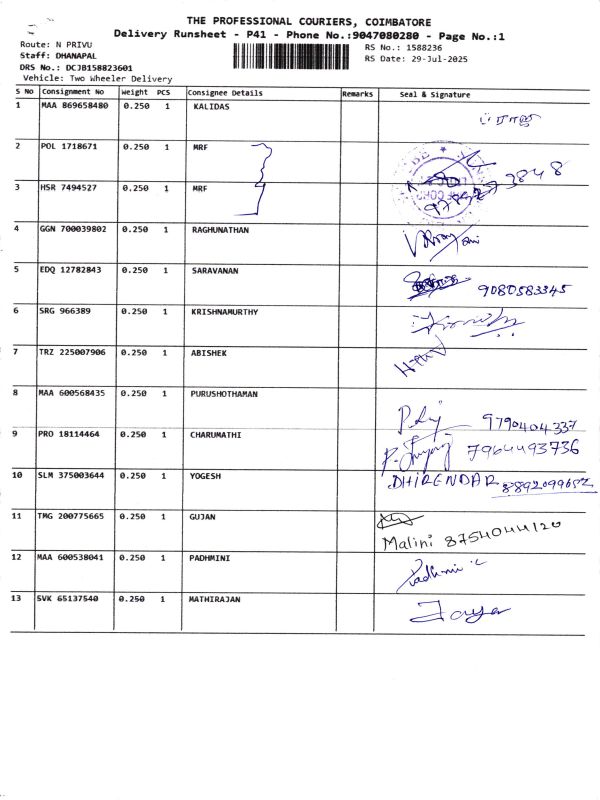 THE PROFESSIONAL COURIERS, COIMBATORE
Delivery Runsheet - P41 - Phone No.:9047080280 - Page No.:1
Route: N PRIVU
RS No.: 1588236
Staff: DHANAPAL
RS Date: 29-Jul-2025
DRS No.: DCJB158823601
Vehicle: Two Wheeler Delivery
S No Consignment No Weight PCS Consignee Details Remarks Seal & Signature
1 MAA 869658480 0.250 1 KALIDAS
2 POL 1718671 0.250 1 MRF
3 HSR 7494527 0.250 1 MRF
4 GGN 700039802 0.250 1 RAGHUNATHAN
5 EDQ 12782843 0.250 1 SARAVANAN
9080583345
6 SRG 966389 0.250 1 KRISHNAMURTHY
7 TRZ 225007906 0.250 1 ABISHEK
8 MAA 600568435 0.250 1 PURUSHOTHAMAN
9790404337
9 PRO 18114464 0.250 1 CHARUMATHI
7964493736
10 SLM 375003644 0.250 1 YOGESH
DHIRENDAR 8892099652
11 TMG 200775665 0.250 1 GUJAN
Malini 8754044120
12 MAA 600538041 0.250 1 PADHMINI
Padhmini
13 SVK 65137540 0.250 1 MATHIRAJAN
Jaya